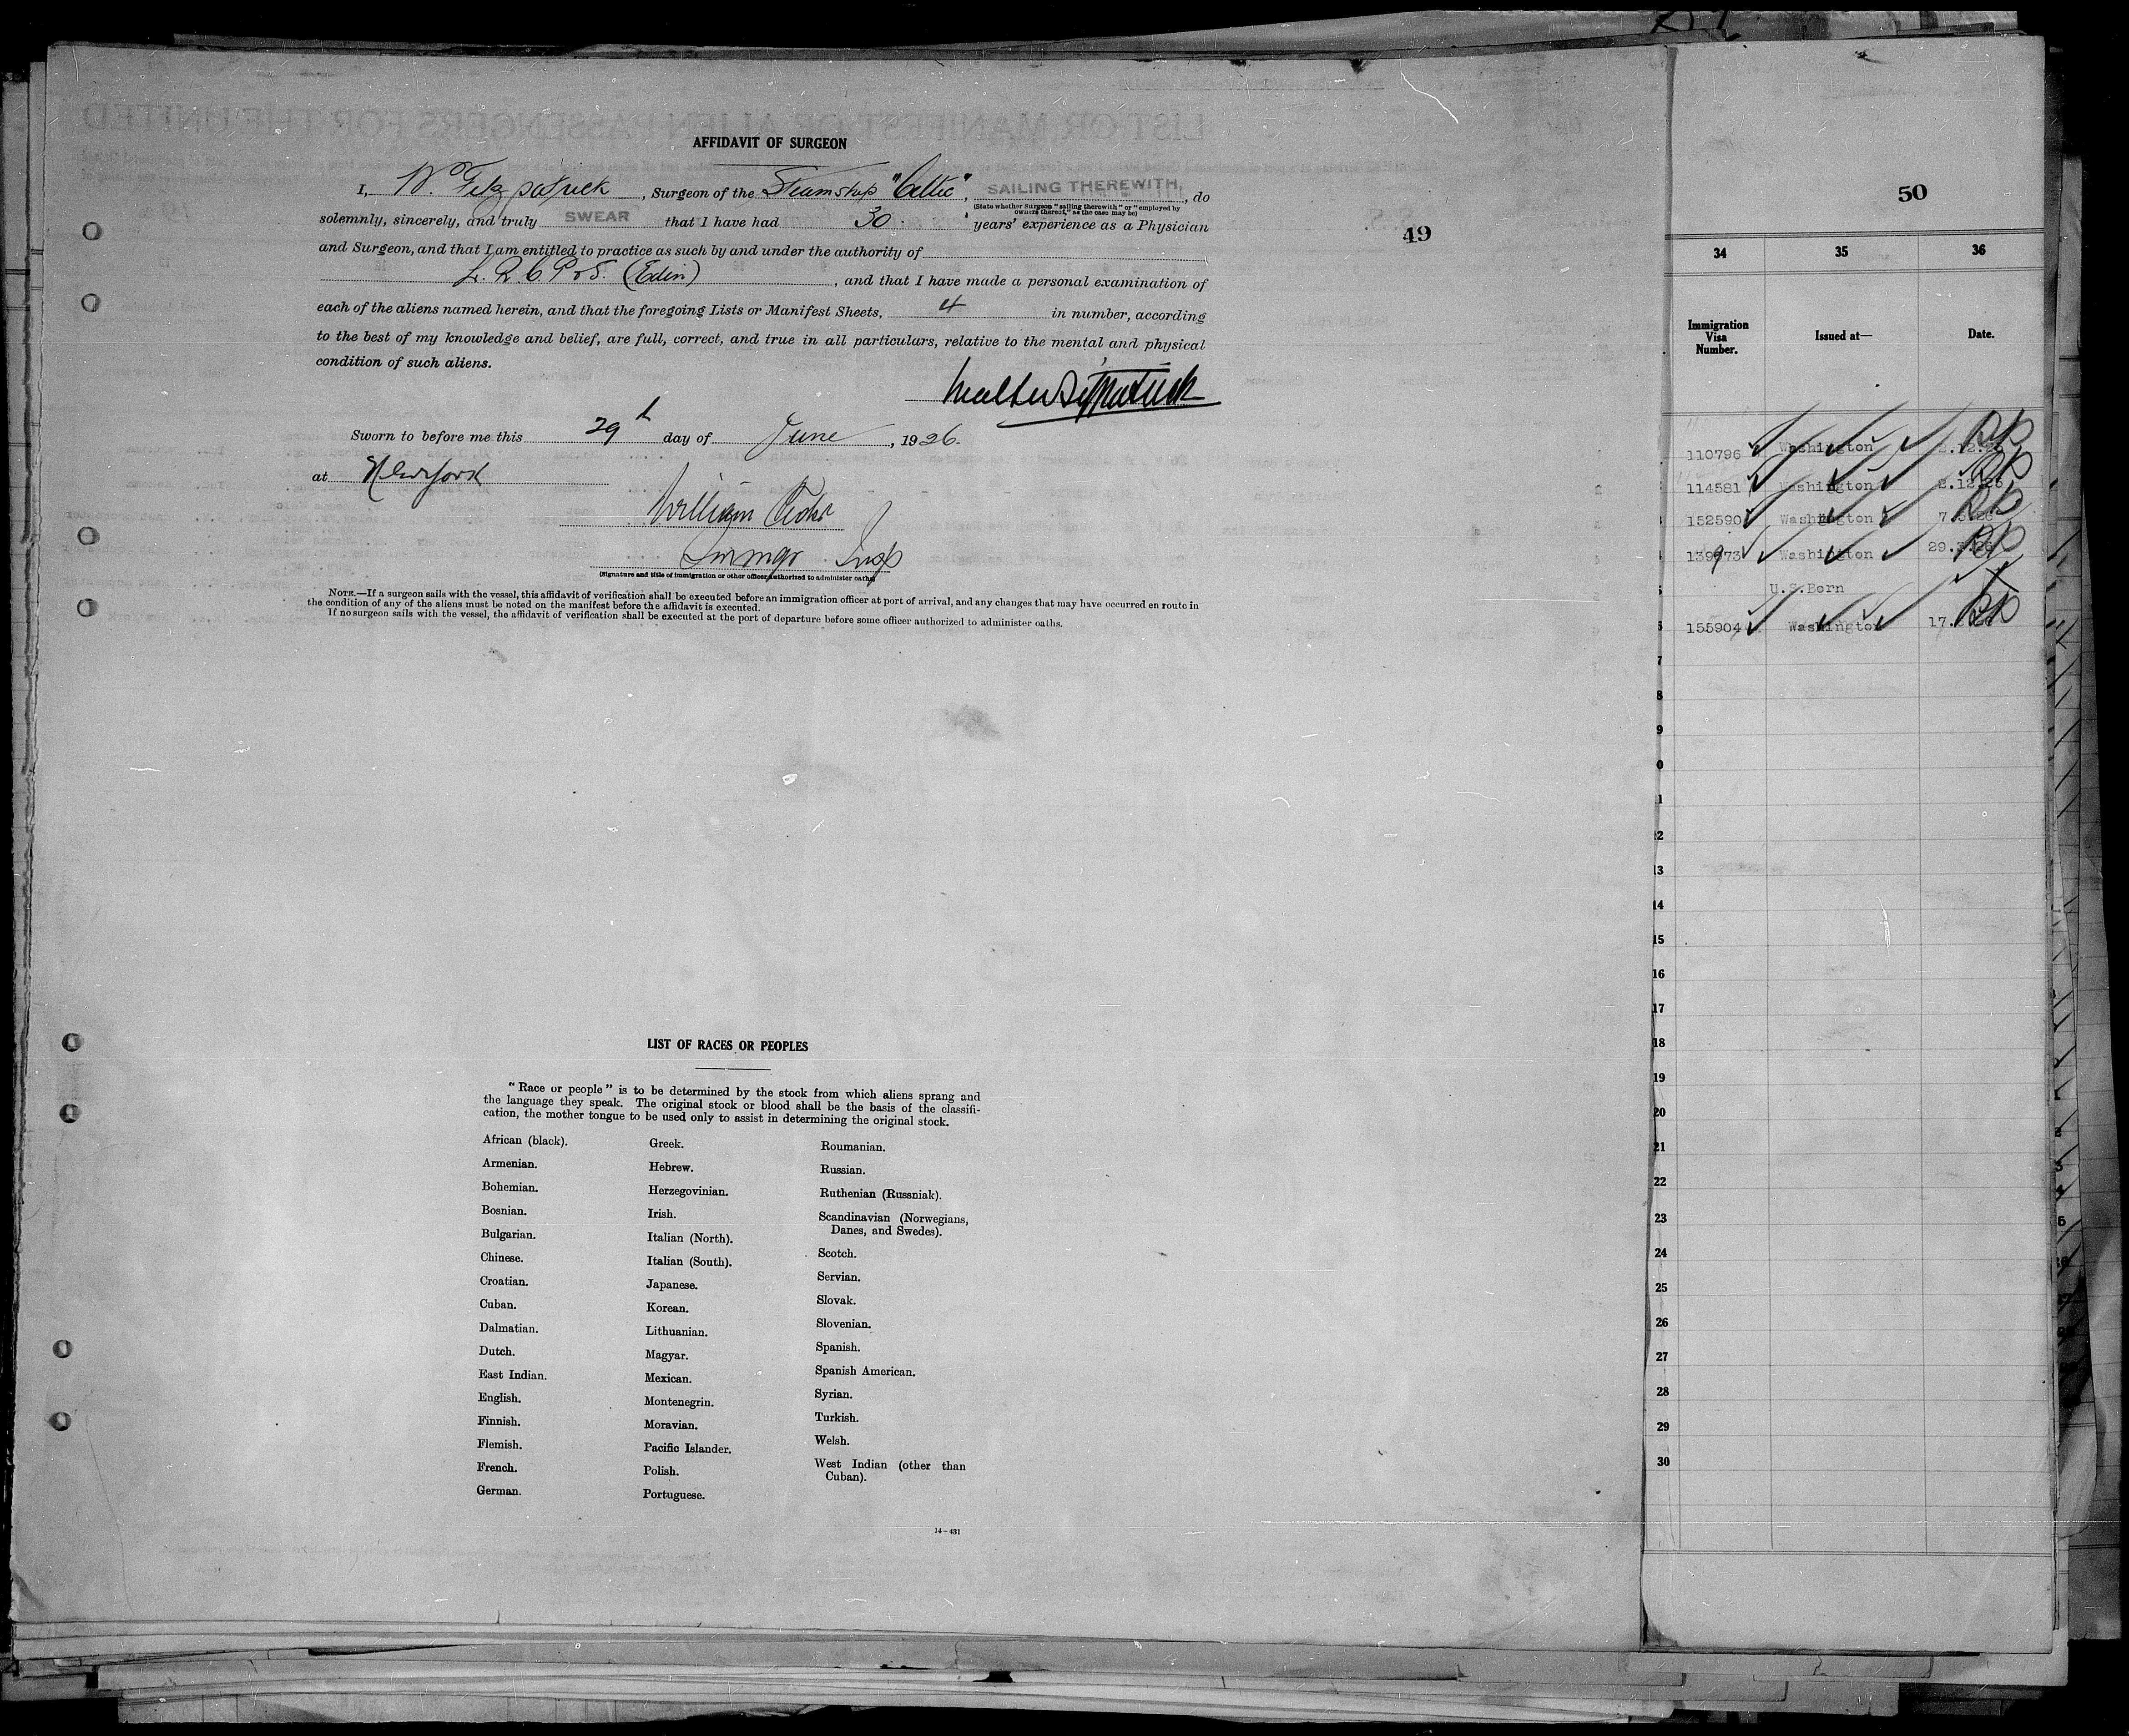 AFFIDAVIT OF SURGEON
I, W. Fitzpatrick, Surgeon of the Steamship "Celtic", SAILING THEREWITH, do
(State whether Surgeon "sailing therewith" or "employed by
owners thereof," as the case may be)
solemnly, sincerely, and truly SWEAR that I have had 30 years' experience as a Physician
and Surgeon, and that I am entitled to practice as such by and under the authority of
L. R. C. P & S. (Edin), and that I have made a personal examination of
each of the aliens named herein, and that the foregoing Lists or Manifest Sheets, 4 in number, according
to the best of my knowledge and belief, are full, correct, and true in all particulars, relative to the mental and physical
condition of such aliens.
Walter Fitzpatrick
Sworn to before me this 29th day of June, 1926.
at New York
William
Immgr Insp
(Signature and title of immigration or other officer authorized to administer oaths)
NOTE.—If a surgeon sails with the vessel, this affidavit of verification shall be executed before an immigration officer at port of arrival, and any changes that may have occurred en route in
the condition of any of the aliens must be noted on the manifest before the affidavit is executed.
If no surgeon sails with the vessel, the affidavit of verification shall be executed at the port of departure before some officer authorized to administer oaths.
49
LIST OF RACES OR PEOPLES
"Race or people" is to be determined by the stock from which aliens sprang and
the language they speak. The original stock or blood shall be the basis of the classifi-
cation, the mother tongue to be used only to assist in determining the original stock.
African (black).
Armenian.
Bohemian.
Bosnian.
Bulgarian.
Chinese.
Croatian.
Cuban.
Dalmatian.
Dutch.
East Indian.
English.
Finnish.
Flemish.
French.
German.
Greek.
Hebrew.
Herzegovinian.
Irish.
Italian (North).
Italian (South).
Japanese.
Korean.
Lithuanian.
Magyar.
Mexican.
Montenegrin.
Moravian.
Pacific Islander.
Polish.
Portuguese.
Roumanian.
Russian.
Ruthenian (Russniak).
Scandinavian (Norwegians,
Danes, and Swedes).
Scotch.
Servian.
Slovak.
Slovenian.
Spanish.
Spanish American.
Syrian.
Turkish.
Welsh.
West Indian (other than
Cuban).
14-431
50
34 35 36
Immigration
Visa
Number.
Issued at—
Date.
110796 Washington
114581 Washington 2.12.25
152590 Washington
Washington
U.S.Born
155904 Washington
7
8
9
0
1
12
13
14
15
16
17
18
19
20
21
22
23
24
25
26
27
28
29
30